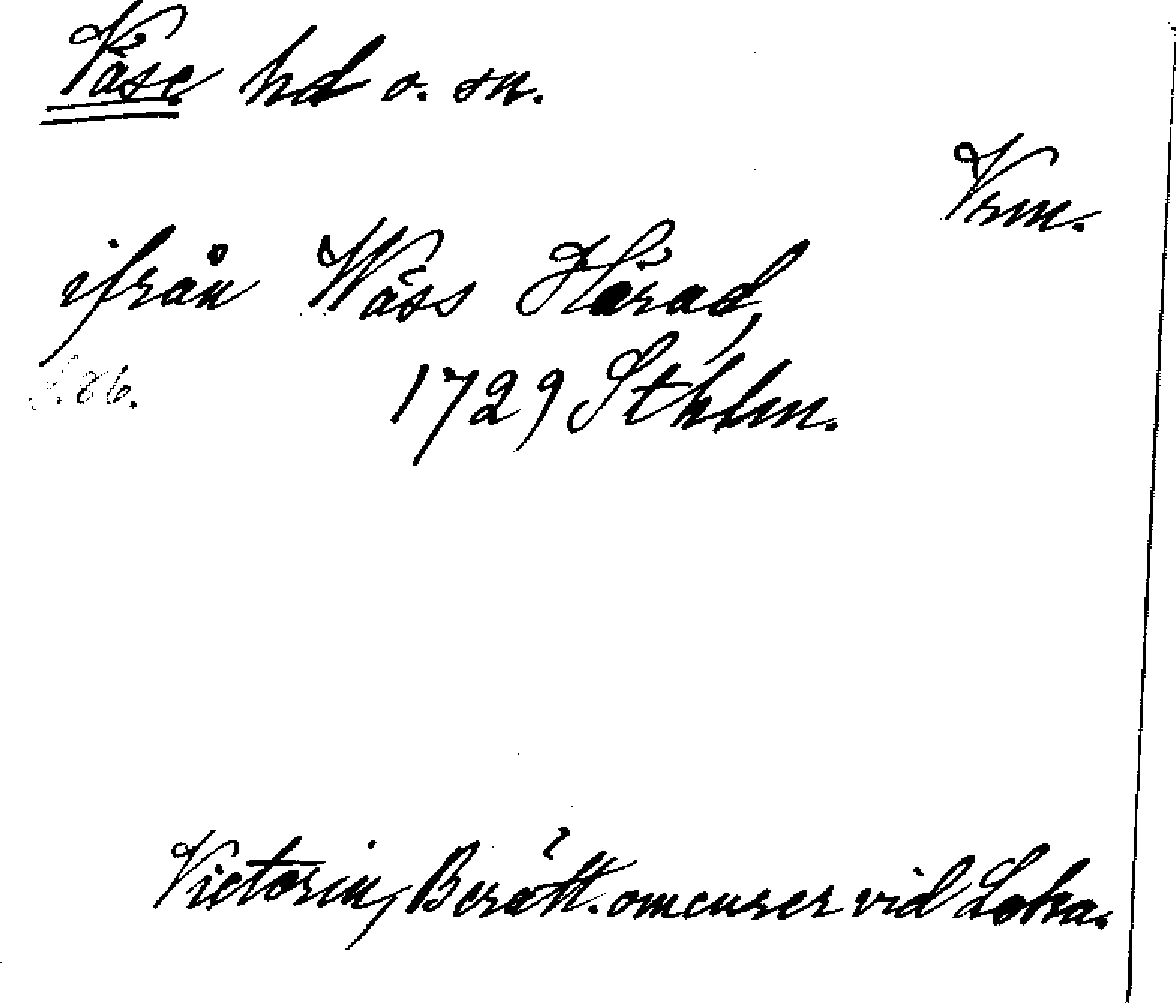 Väse hd o. sn.
Vrm.
ifrån Wäss Härad,
S. 86.
1729 Sthlm.
Victorin, Berätt. om curer vid Loka.